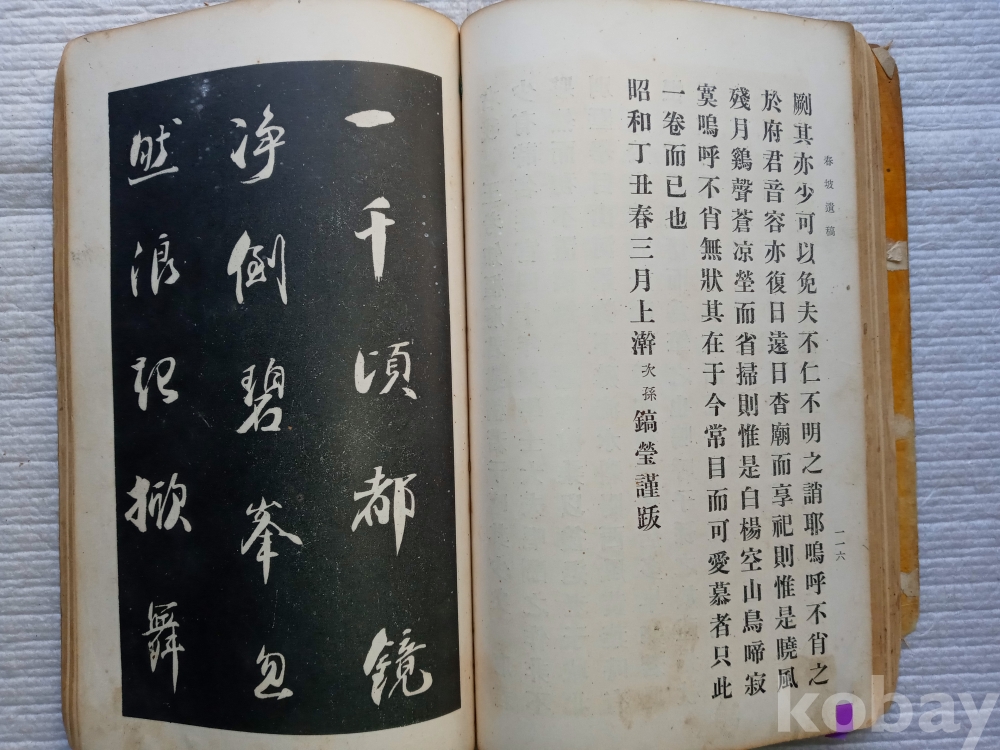 春坡遺稿
劂其亦少可以免夫不仁不明之誚耶嗚呼不肖之
於府君音容亦復日遠日杳廟而享祀則惟是曉風
殘月鷄聲蒼凉塋而省掃則惟是白楊空山鳥啼寂
寞嗚呼不肖無狀其在于今常目而可愛慕者只此
一卷而已也
昭和丁丑春三月上澣 次孫 鎬瑩謹跋
一一六
一千頃都鏡
净倒碧峯忽
然浪起掀舞
kobay